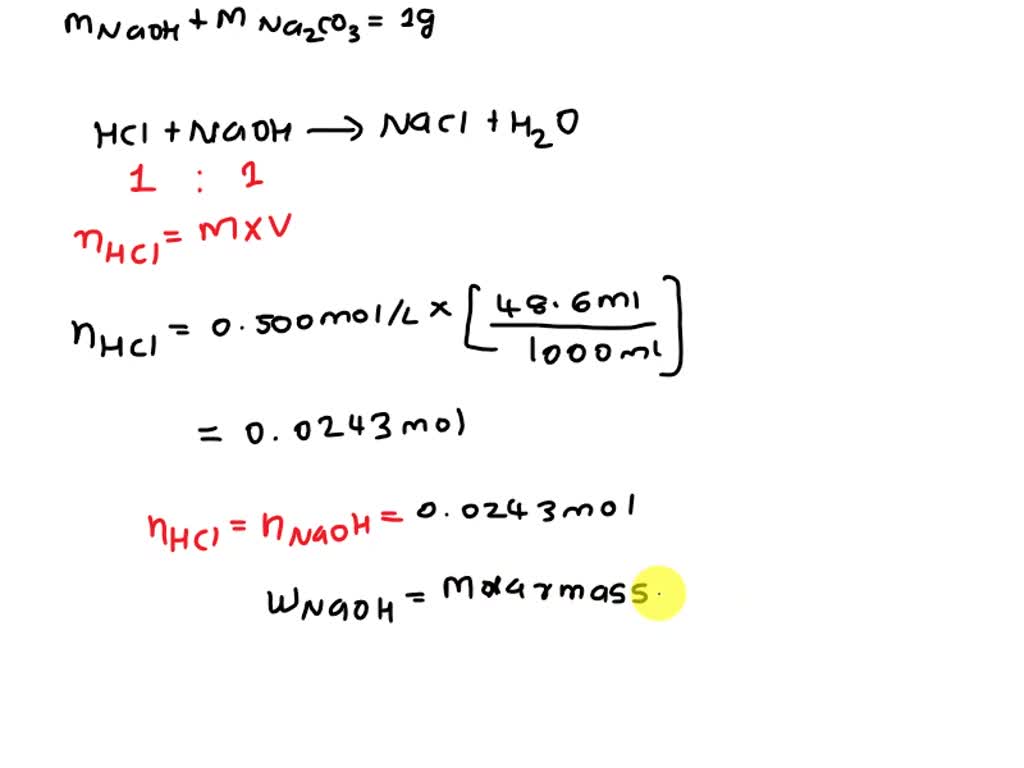 m NaOH + m Na₂CO₃ = 1g
HCl + NaOH ⟶ NaCl + H₂O
1 : 1
n HCl = M×V
n HCl = 0.500 mol/L × [48.6 ml / 1000 ml]
= 0.0243 mol
n HCl = n NaOH = 0.0243 mol
W NaOH = Molar mass.